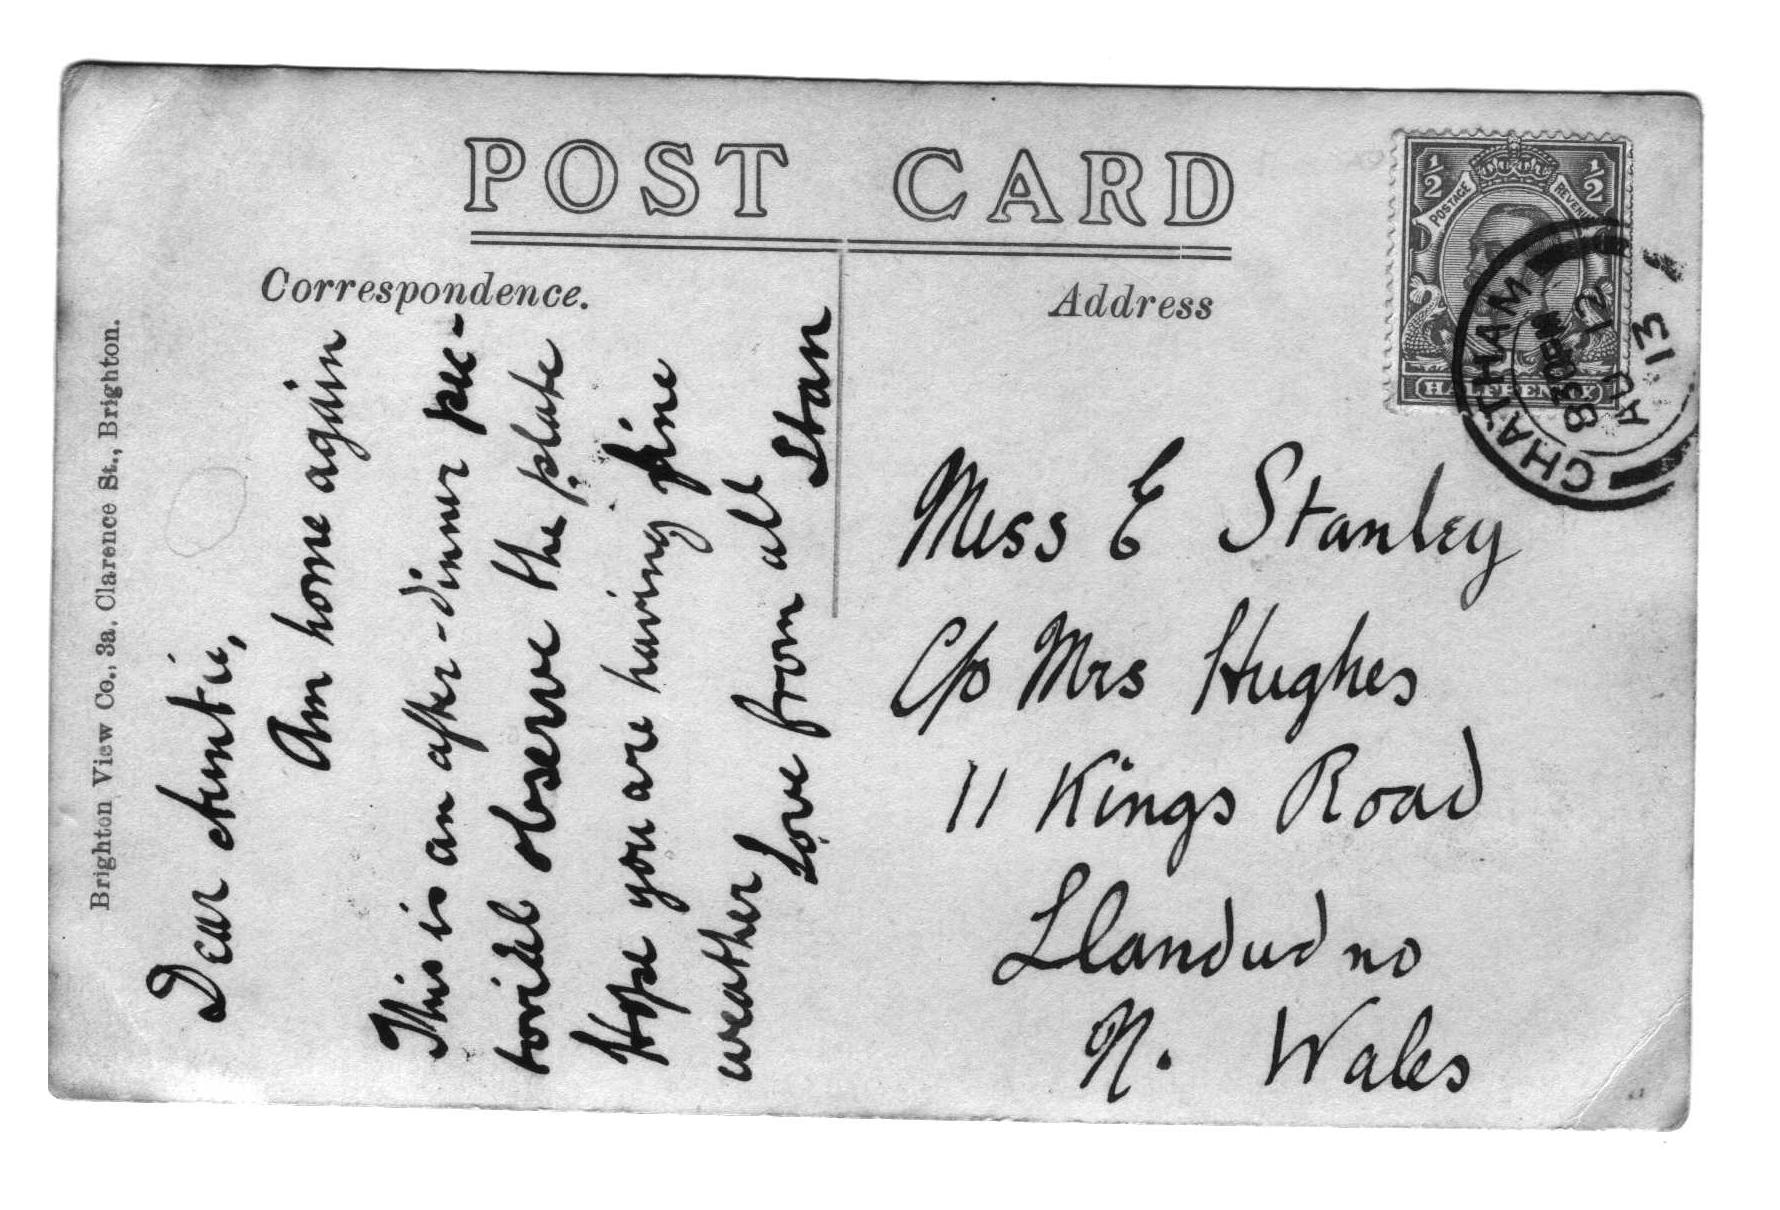 POST CARD
Correspondence.
Address
Brighton View Co., 3a, Clarence St., Brighton.
Dear Auntie,
Am home again
This is an after-dinner pic-
torial observe the plate
Hope you are having fine
weather
Love from all
Stan
½ ½
POSTAGE REVENUE
HALFPENNY
CHATHAM
830PM
AU 12
13
Miss E Stanley
C/o Mrs Hughes
11 Kings Road
Llandudno
N. Wales